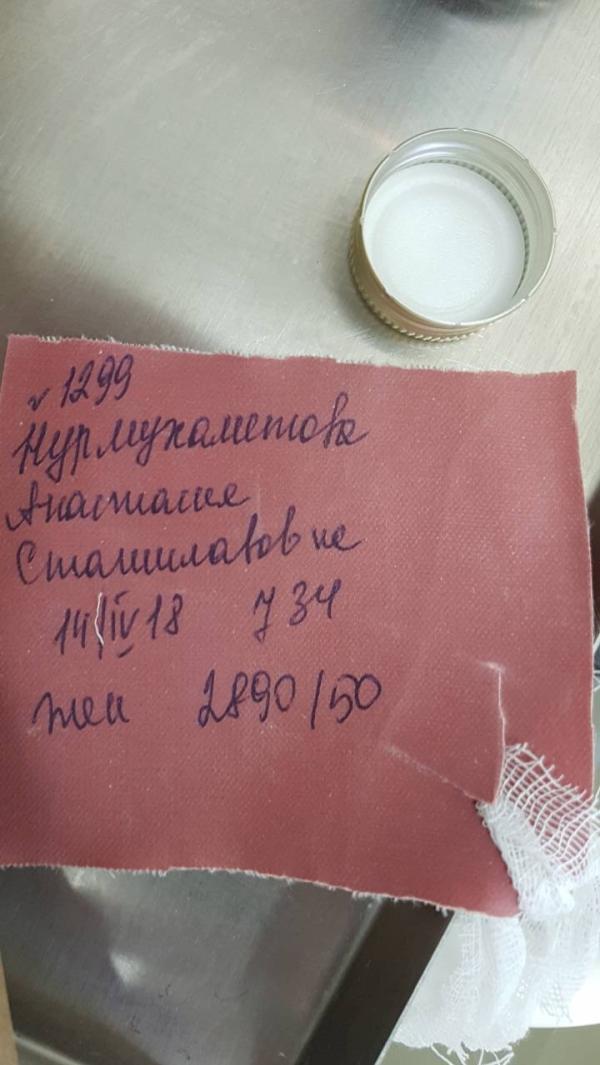 №1299
Нурмухаметова
Анастасия
Станиславовна
14/IV 18 7 34
жен 2890/50